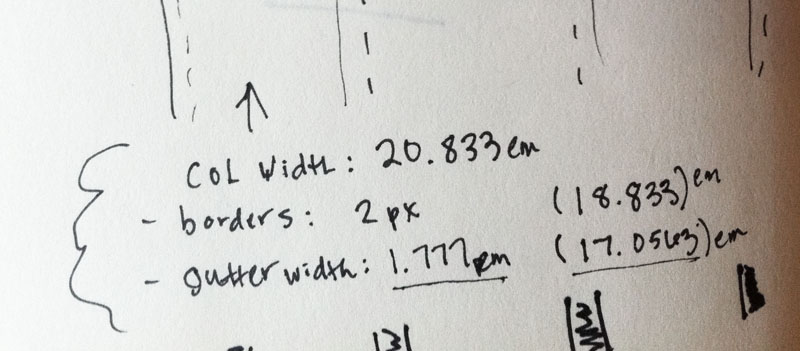 COL Width: 20.833em
- borders: 2px (18.833)em
- gutter width: 1.777em (17.0563)em